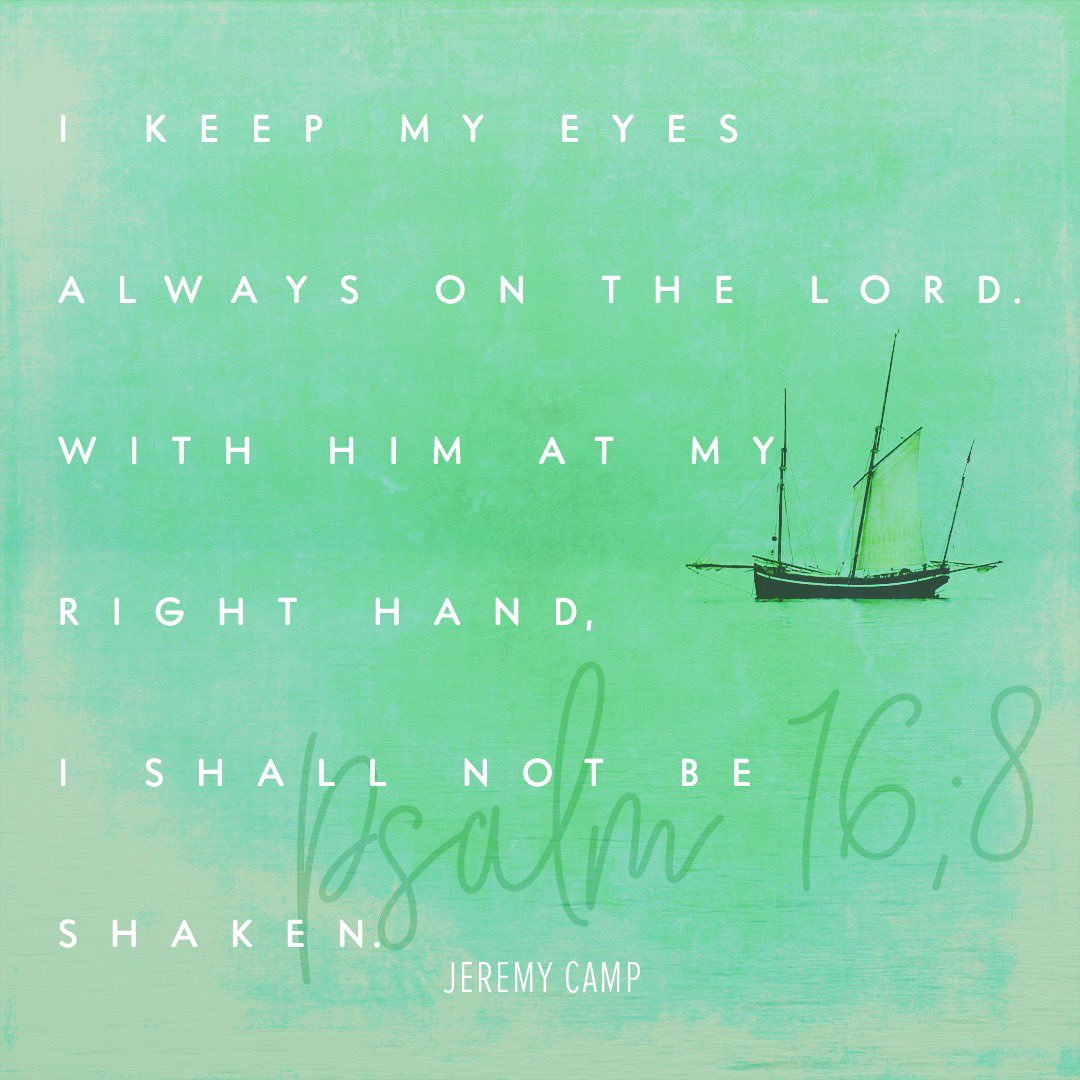 I KEEP MY EYES
ALWAYS ON THE LORD.
WITH HIM AT MY
RIGHT HAND,
I SHALL NOT BE
SHAKEN.
Psalm 16;8
JEREMY CAMP